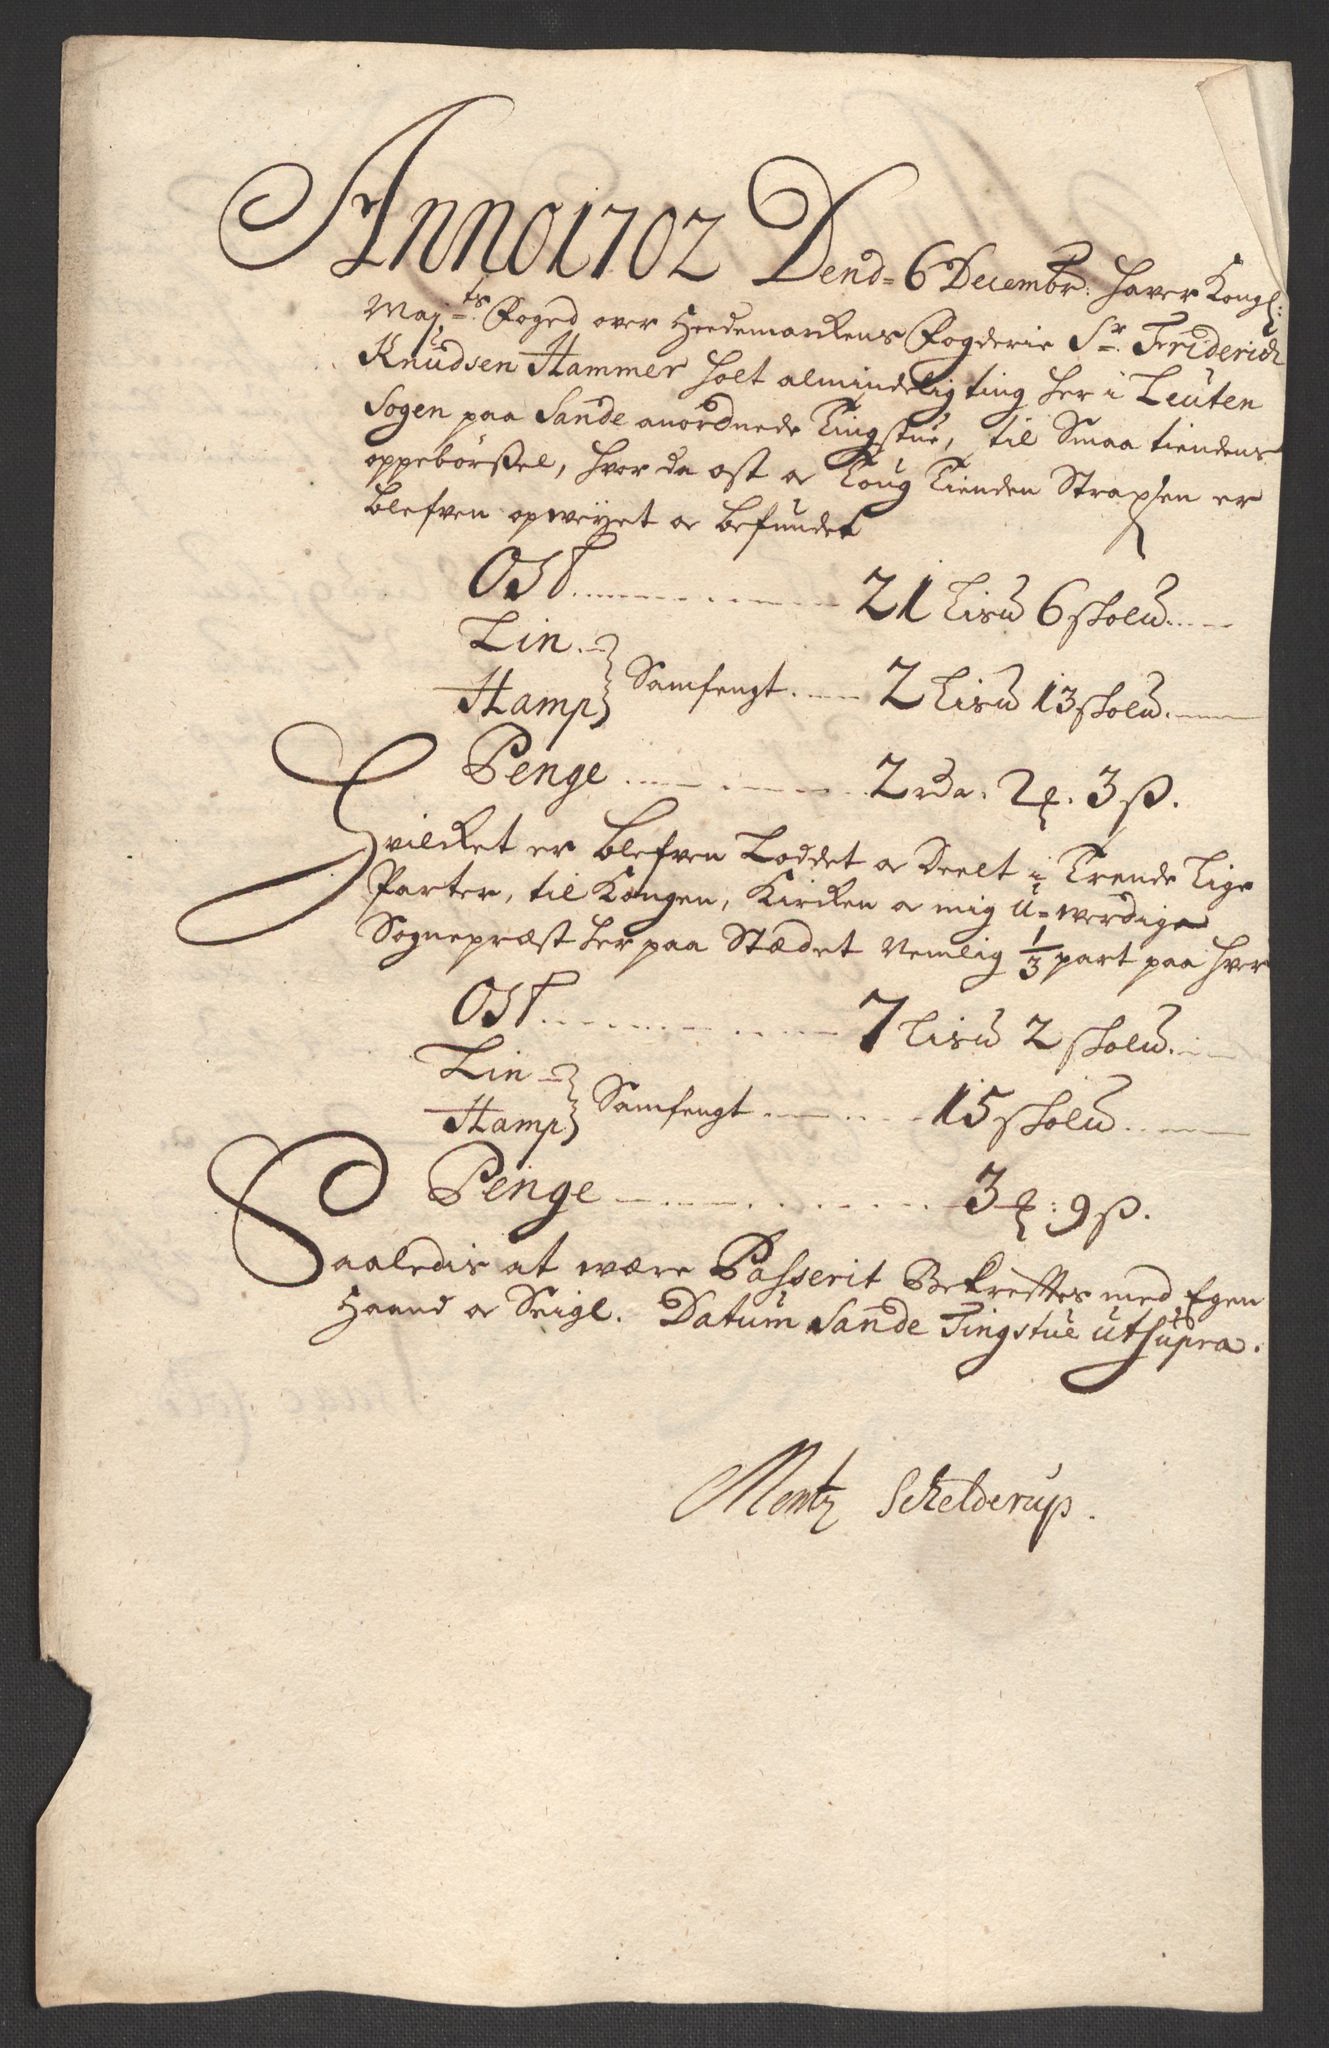 Anno 1702 Dend= 6 Decembr: hafver Kongl:
Maj=ts: Foged over Heedemarckens Fogderie Sr. Friderich
Knudsen Hammer holt almindelig ting her i Leuten
Sogen paa Sande anordnede Tingstue, til Smaa tiendens
oppebörßel, hvor da ost oc Toug Tienden Straxsen er
blefven opweyet oc befundet
Ost ........ 21 Lisu 6 skolu.....
Lin
Hamp } Samfengt. .... 2 Lisu 13 skolu.
Penge ........ 2 rdr. 2 ₰. 3 ß.
Hvilcket er blefven Loddet oc deelt i Trende Lige
Parter, til Kongen, Kircken oc mig u=werdige
Sognepræst her paa Stædet Nemlig 1/3 part paa hver
Ost ........ 7 Lisu 2 skolu.
Lin
Hamp } Samfengt ........ 15 skolu.
Penge ........ 3 ₰: 9 ß.
Saaledis at wære Passerit Bekreftes med Egen
Haand oc Seigl. Datum Sande Tingstue ut supra.
Mentz Schelderup.